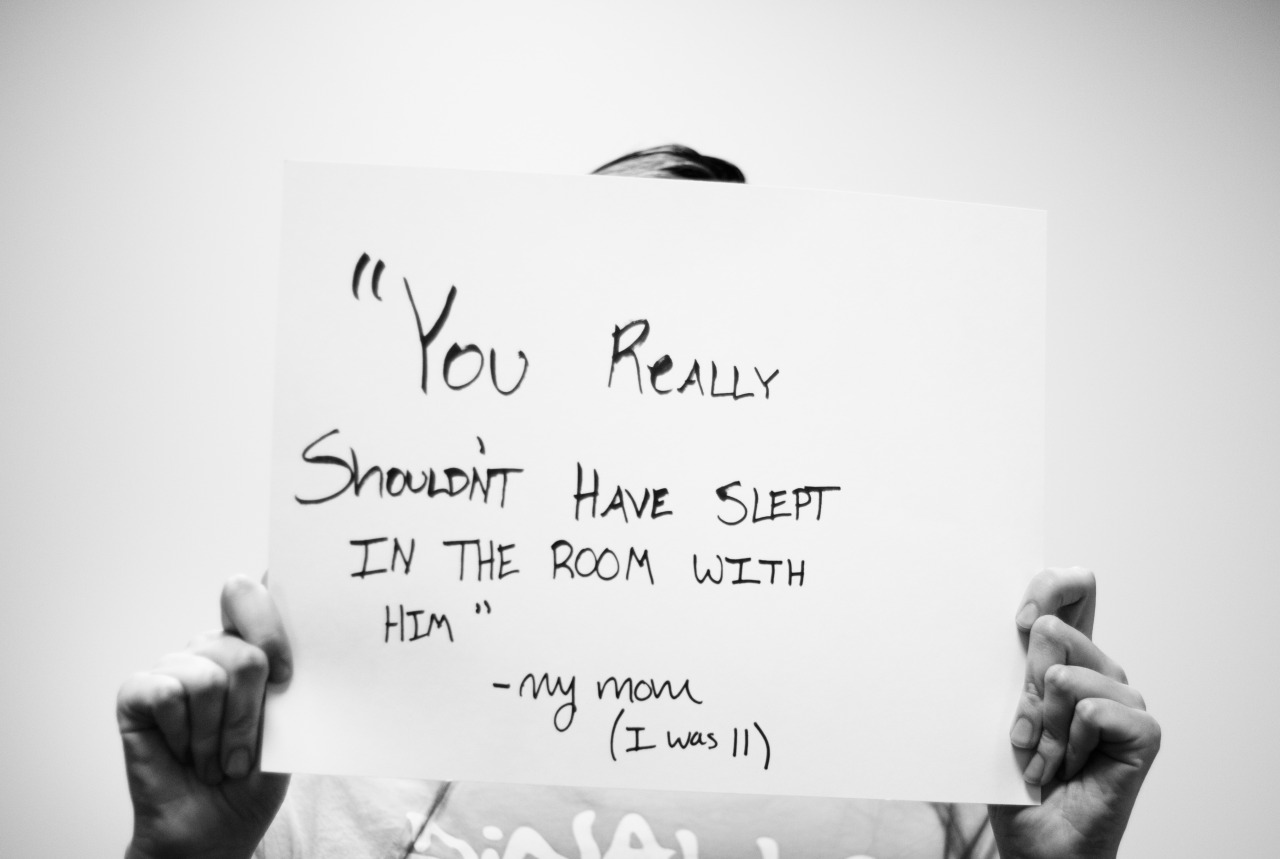 "You Really
Shouldn't Have Slept
in the room with
him"
- my mom
(I was 11)